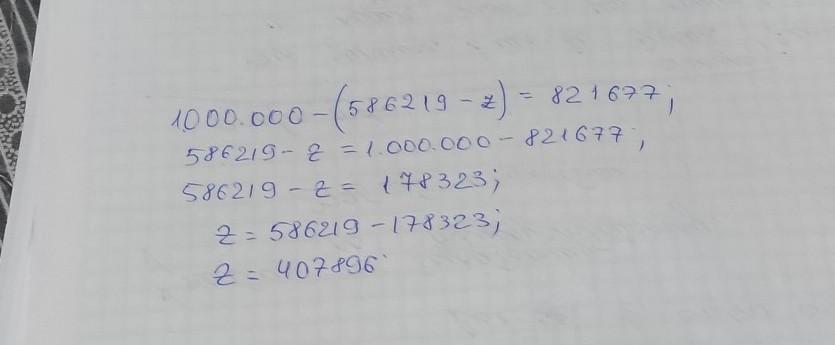 1000.000-(586219-z)=821677;
586219-z=1.000.000-821677;
586219-z=178323;
z=586219-178323;
z=407896